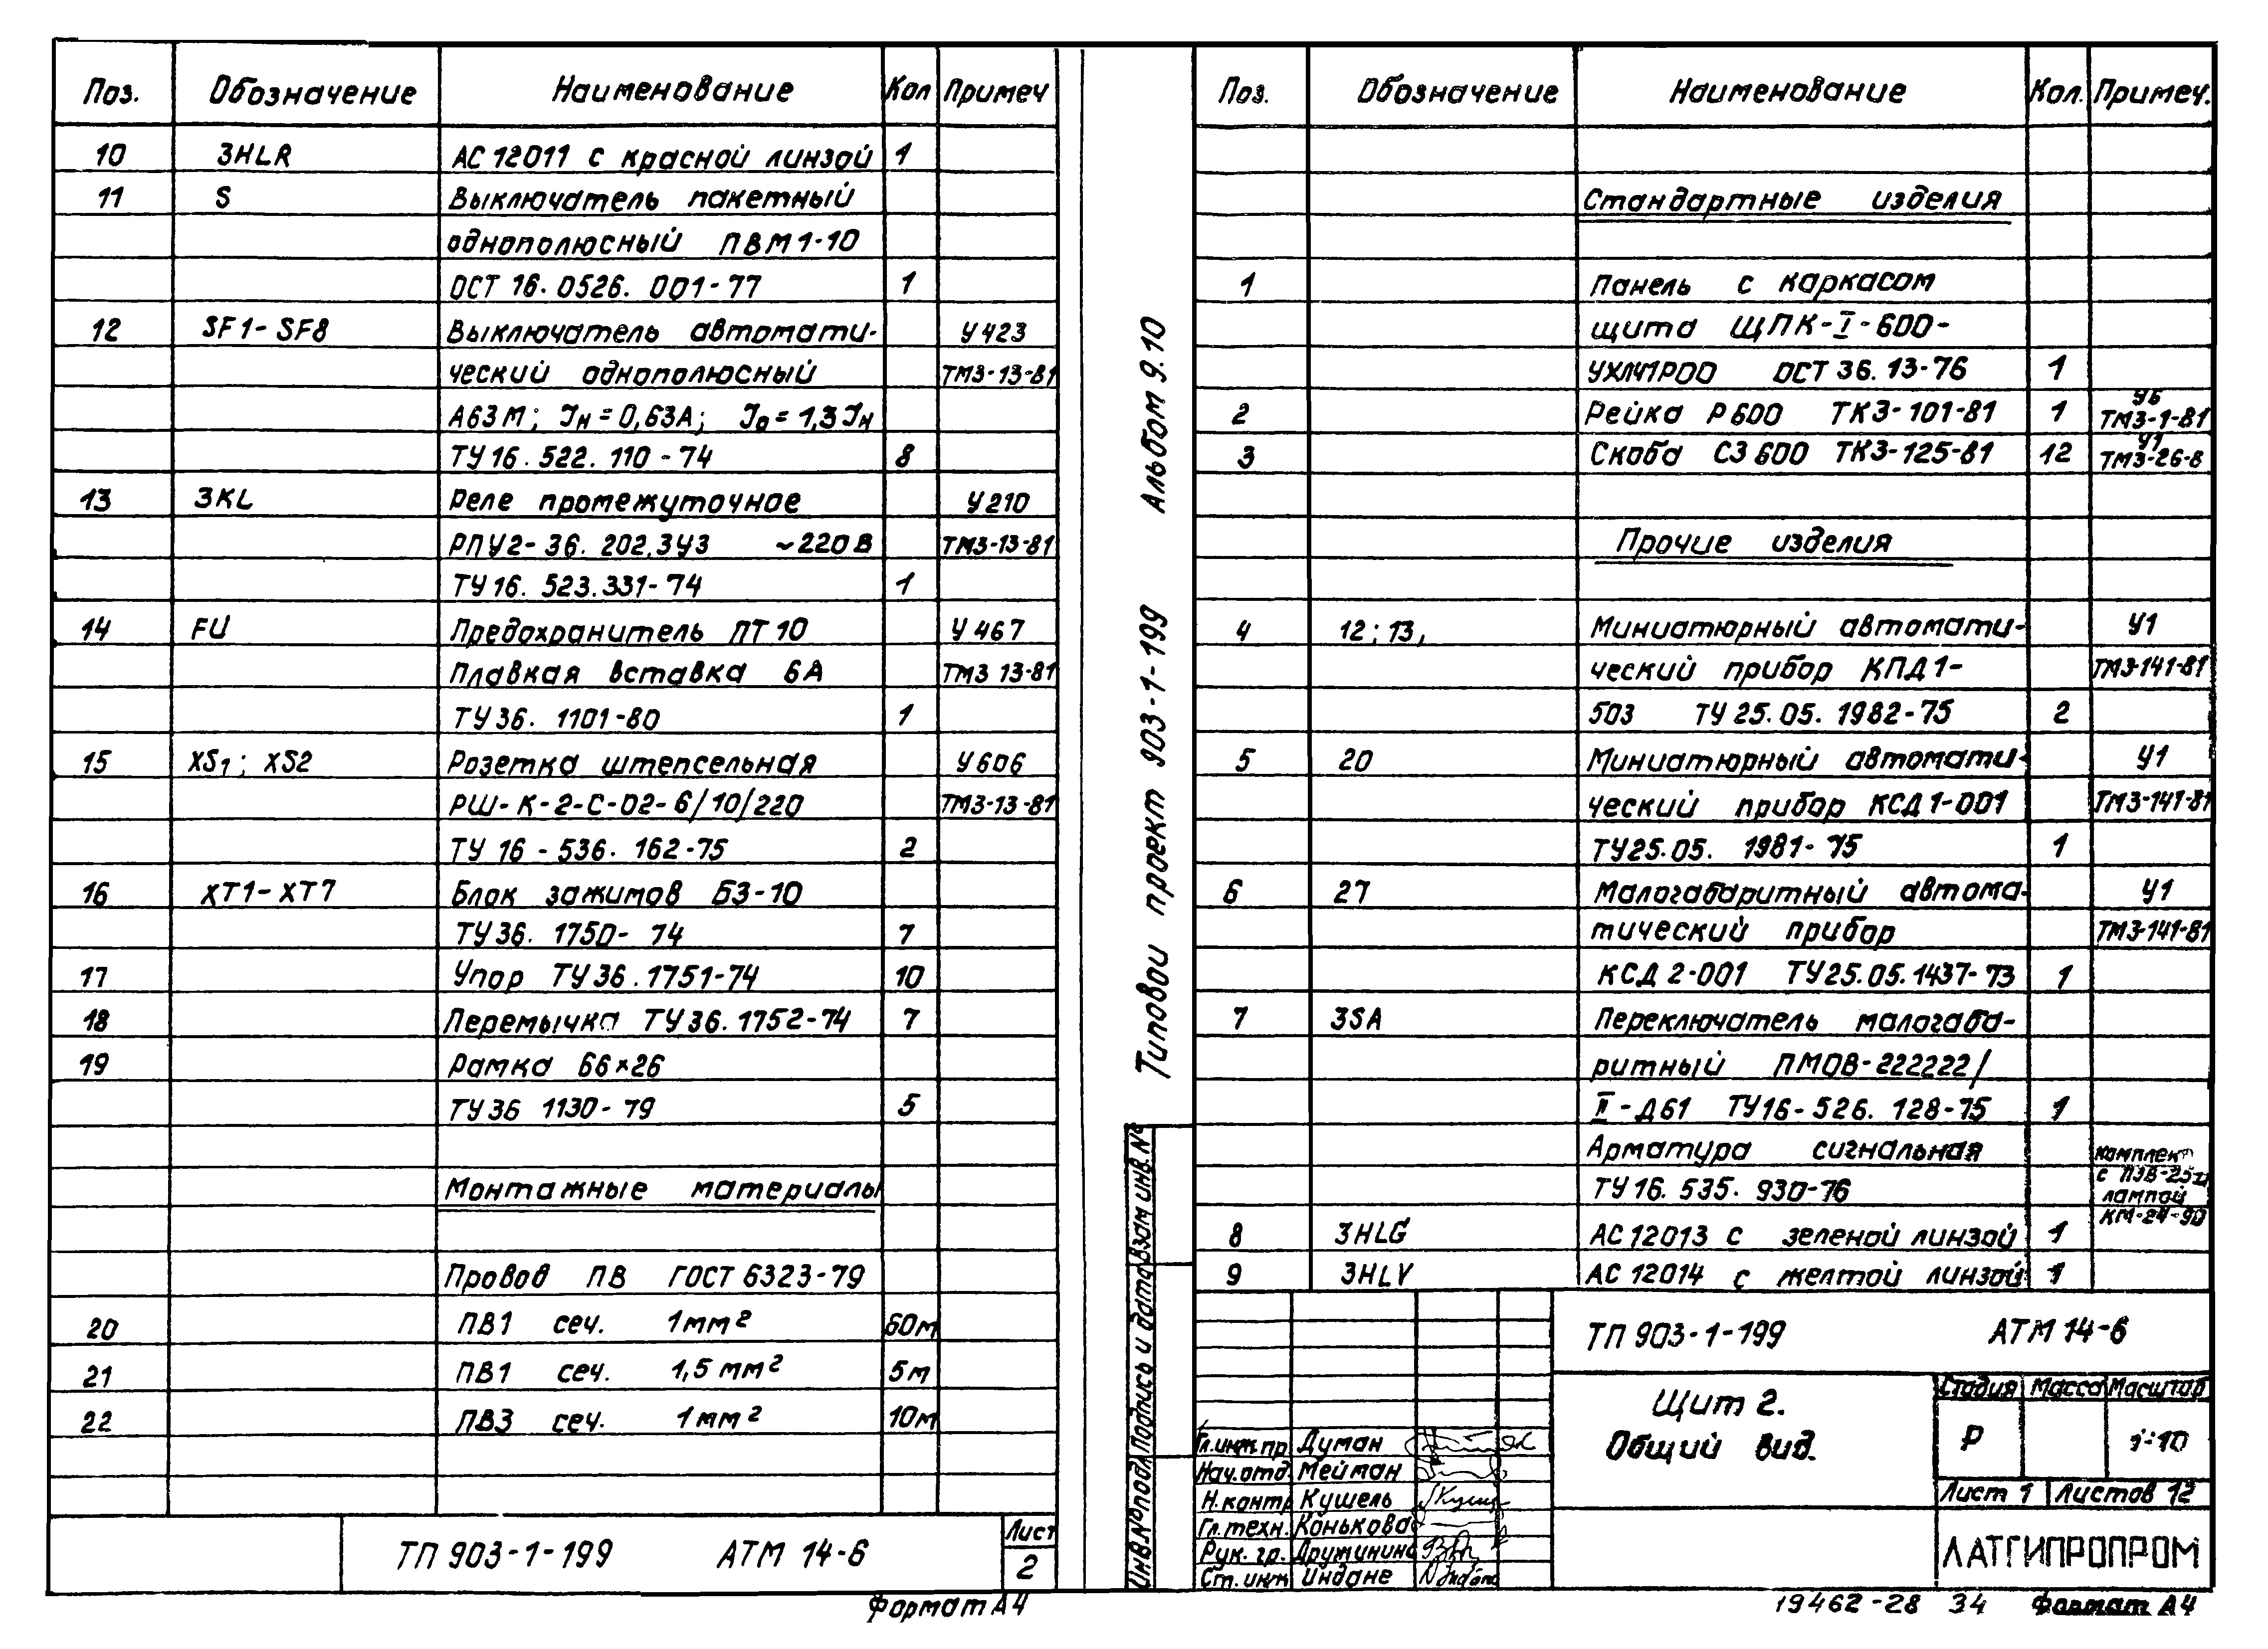 Поз. Обозначение Наименование Кол Примеч
10 3HLR АС 12011 с красной линзой 1
11 S Выключатель пакетный
однополюсный ПВМ 1-10
ОСТ 16. 0526. 001-77 1
12 SF1-SF8 Выключатель автомати- У423
ческий однополюсный ТМ3-13-81
А63М; Iн=0,63А; Iо=1,3Iн
ТУ 16. 522. 110-74 8
13 3KL Реле промежуточное У210
РПУ2-36. 202.3У3 ~220В ТМ3-13-81
ТУ 16. 523.331-74 1
14 FU Предохранитель ПТ 10 У467
Плавкая вставка 6А ТМ3 13-81
ТУ 36. 1101-80 1
15 XS1; XS2 Розетка штепсельная У606
РШ-К-2-С-02-6/10/220 ТМ3-13-81
ТУ 16-536. 162-75 2
16 XT1-XT7 Блок зажимов БЗ-10
ТУ 36. 1750-74 7
17 Упор ТУ 36.1751-74 10
18 Перемычка ТУ 36.1752-74 7
19 Рамка 66×26
ТУ 36 1130-79 5
Монтажные материалы
Провод ПВ ГОСТ 6323-79
20 ПВ1 сеч. 1мм² 60м
21 ПВ1 сеч. 1,5 мм² 5м
22 ПВ3 сеч. 1мм² 10м
ТП 903-1-199 АТМ 14-6 Лист
2
Формат А4
Типовой проект 903-1-199 Альбом 9.10
Инв.№подл Подпись и дата Взам инв.№
Поз. Обозначение Наименование Кол. Примеч.
Стандартные изделия
1 Панель с каркасом
щита ЩПК-I-600-
УХЛ41Р00 ОСТ 36.13-76 1
2 Рейка Р600 ТК3-101-81 1 У6
ТМ3-1-81
3 Скоба С3 600 ТК3-125-81 12 У1
ТМ3-26-8
Прочие изделия
4 12; 13, Миниатюрный автомати- У1
ческий прибор КПД 1- ТМ3-141-81
503 ТУ 25.05. 1982-75 2
5 20 Миниатюрный автомати- У1
ческий прибор КСД 1-001 ТМ3-141-81
ТУ25.05. 1981-75 1
6 27 Малогабаритный автома- У1
тический прибор ТМ3-141-81
КСД 2-001 ТУ25.05.1437-73 1
7 3SA Переключатель малогаба-
ритный ПМОВ-222222/
II-Д61 ТУ16-526. 128-75 1
Арматура сигнальная комплект
ТУ 16. 535. 930-76 с ПЭВ-25
лампой
КМ-24-90
8 3HLG АС 12013 с зеленой линзой 1
9 3HLV АС 12014 с желтой линзой 1
ТП 903-1-199 АТМ 14-6
Щит 2.
Общий вид.
Стадия Масса Масштаб
Р 1:10
Лист 1 Листов 12
Гл.инж.пр. Думан
Нач.отд. Мейман
Н.контр Кушель
Гл.техн. Конькова
Рук. гр. Дружинина
Ст.инж Индане
ЛАТГИПРОПРОМ
19462-28 34 Формат А4